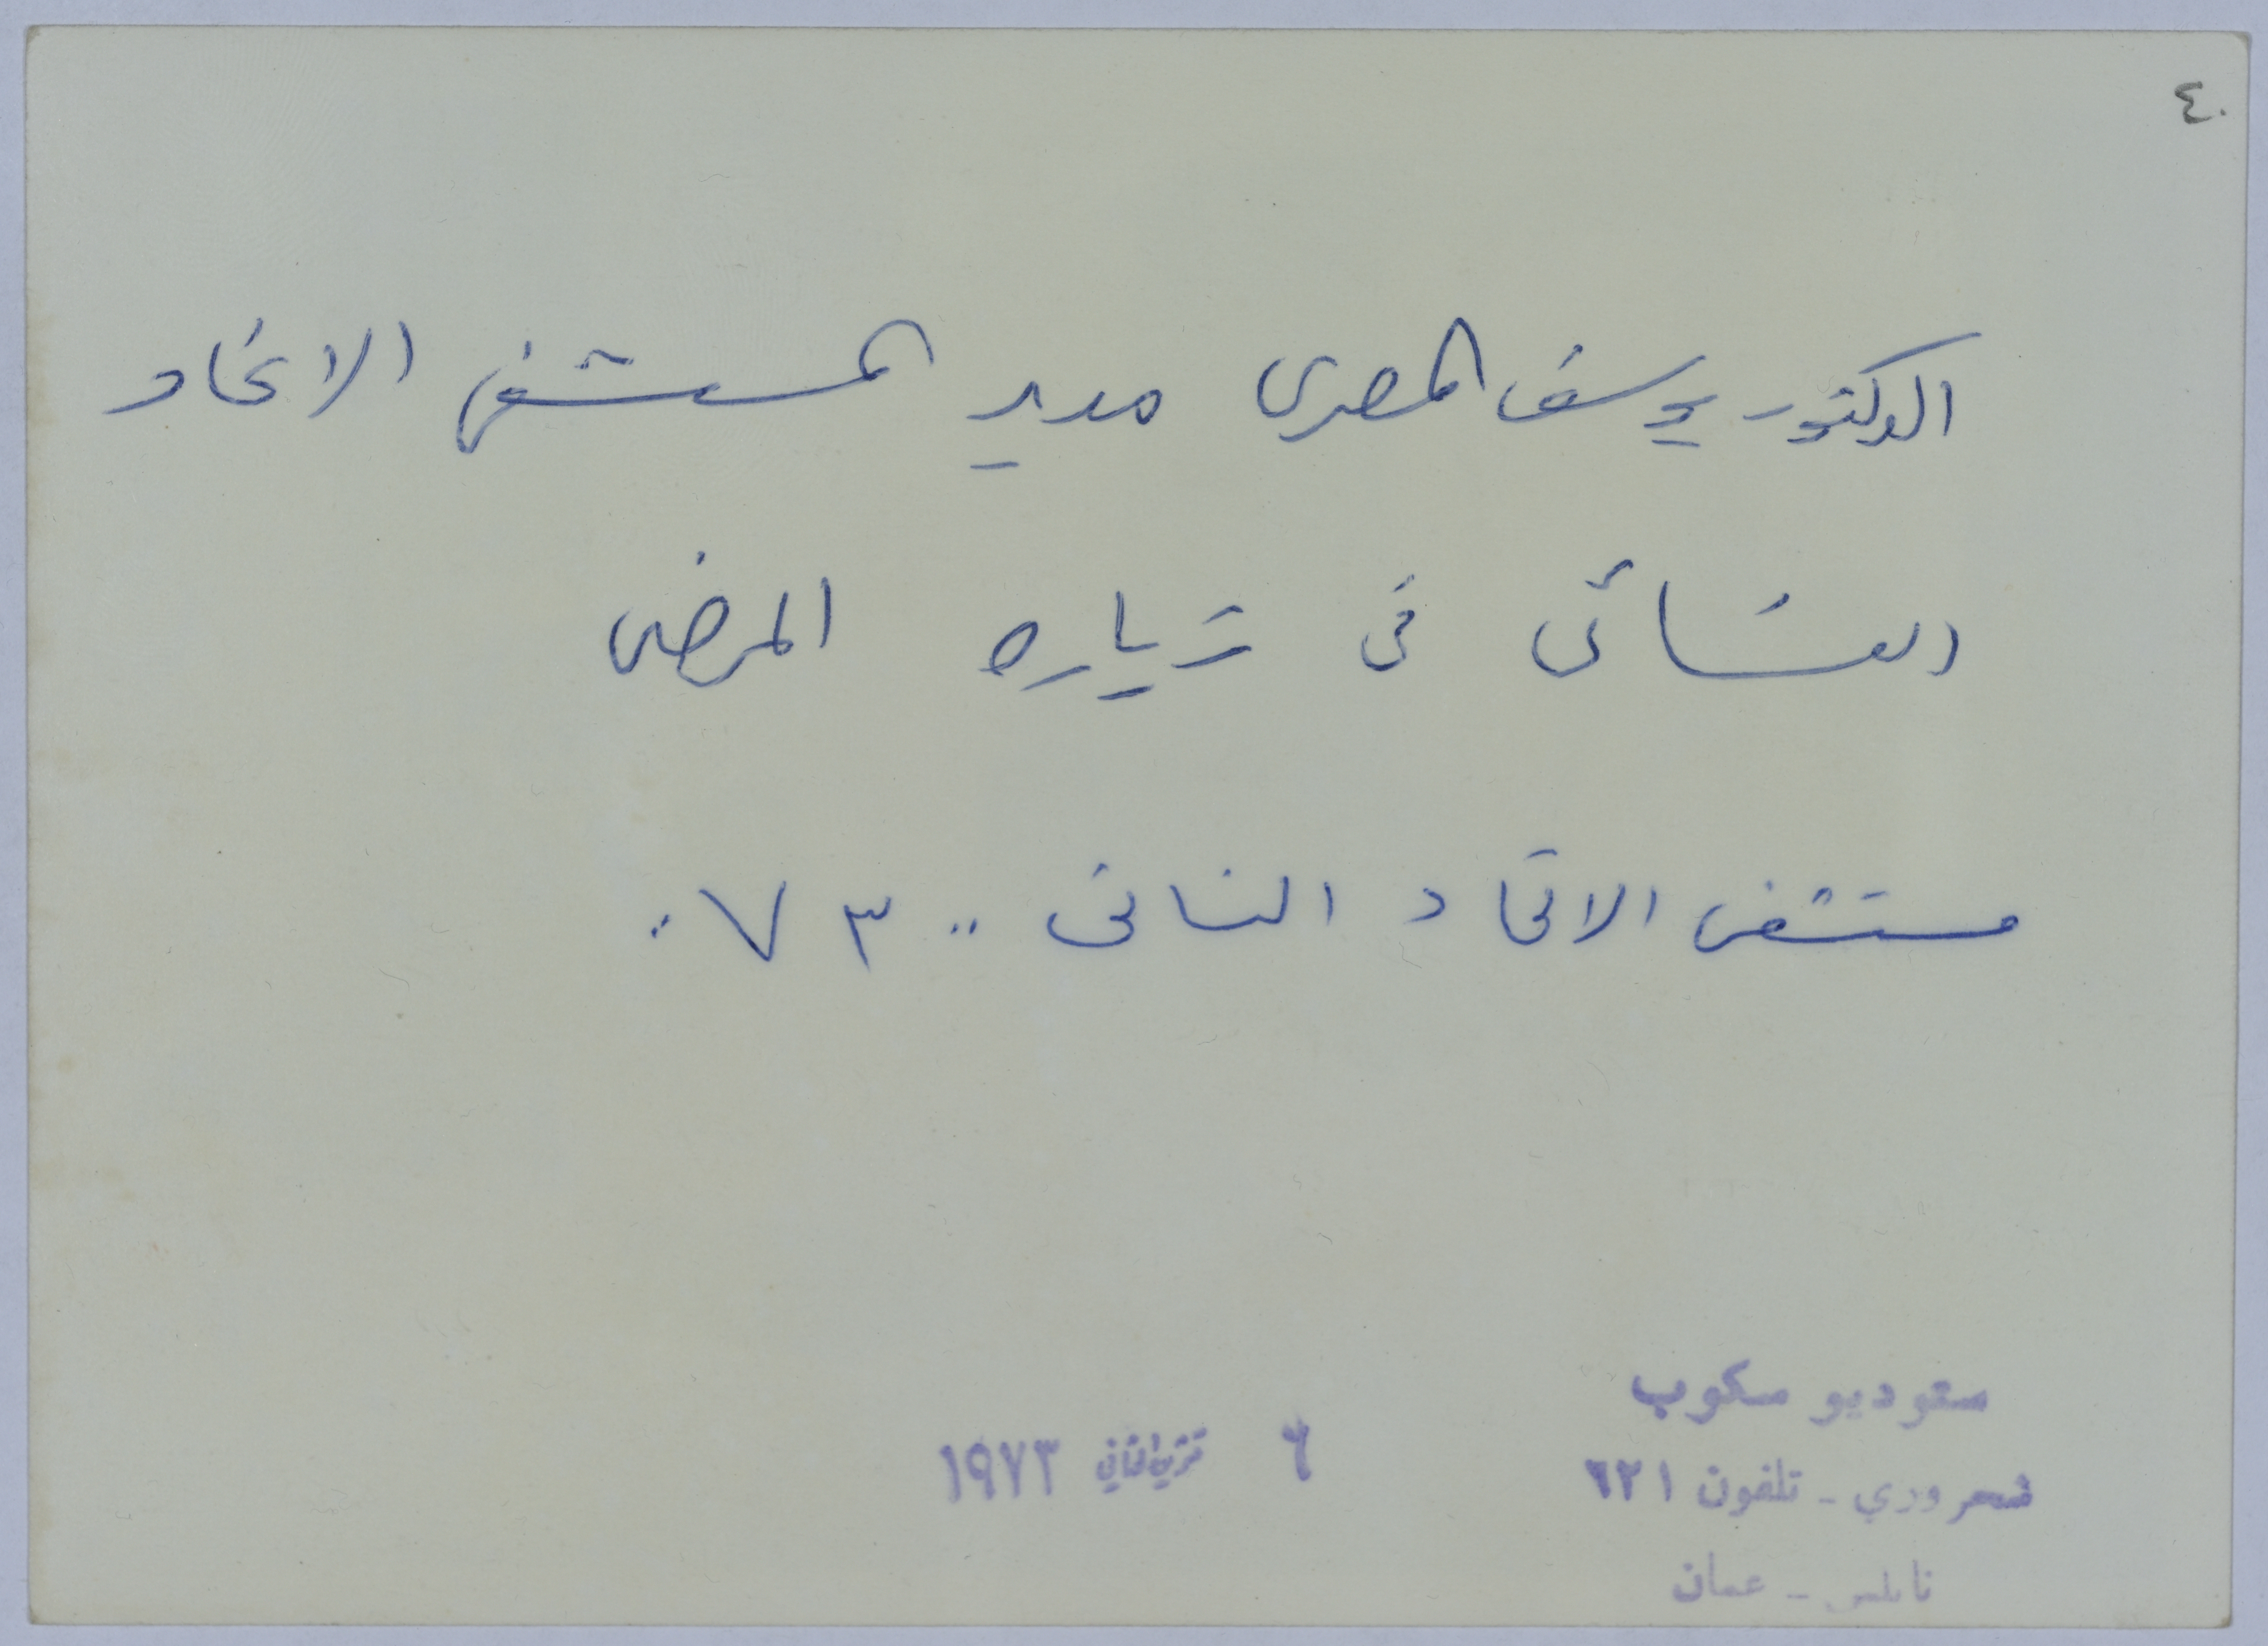 ٤٠
الدكتور يوسف المصرى مدير المستشفى الاتحاد
النسائى فى زياره المرضى
مستشفى الاتحاد النسائى .. ٧٣ .
ستوديو سكوب
شحروري - تلفون ٦٢١
نابلس - عمان
٦ تشرين الثاني ١٩٧٣